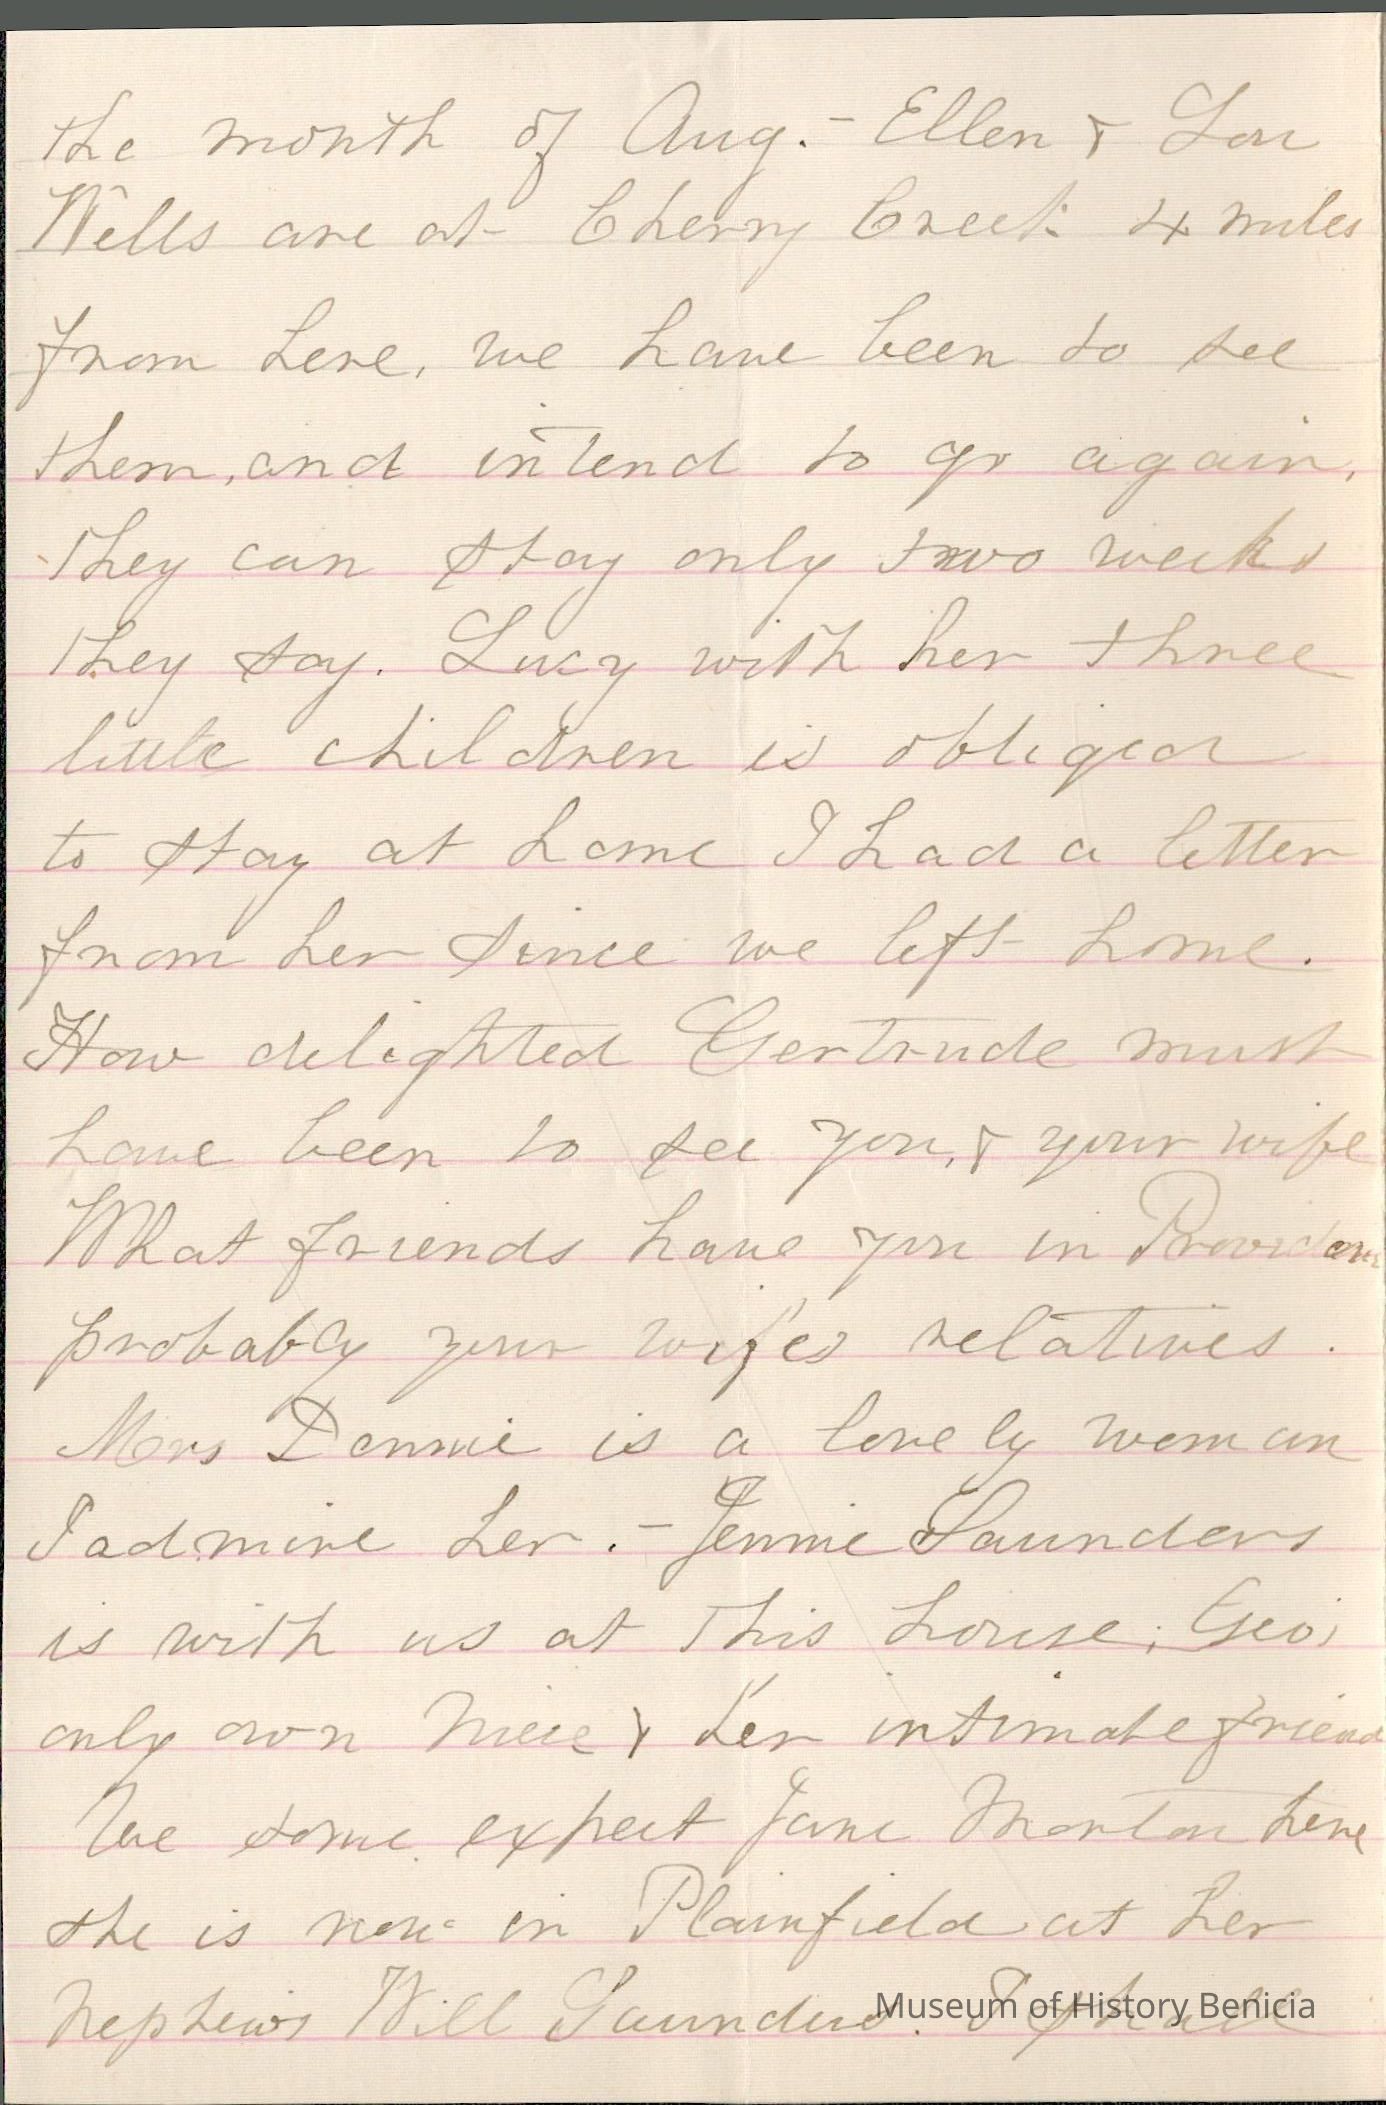 the month of Aug. - Ellen & Lou
Wells are at Cherry Creek 4 miles
from here, we have been to see
them, and intend to go again,
they can stay only two weeks
they say. Lucy with her three
little children is obliged
to stay at home I had a letter
from her since we left home.
How delighted Gertrude must
have been to see you, & your wife
What friends have you in Providence
probably your wife's relatives.
Mrs Dennie is a lovely woman
I admire her. - Jennie Saunders
is with us at this house; Geo's
only own niece & her intimate friend
We some expect Jane Morton here
she is now in Plainfield at her
Nephews Will Saunders. I shall
Museum of History Benicia